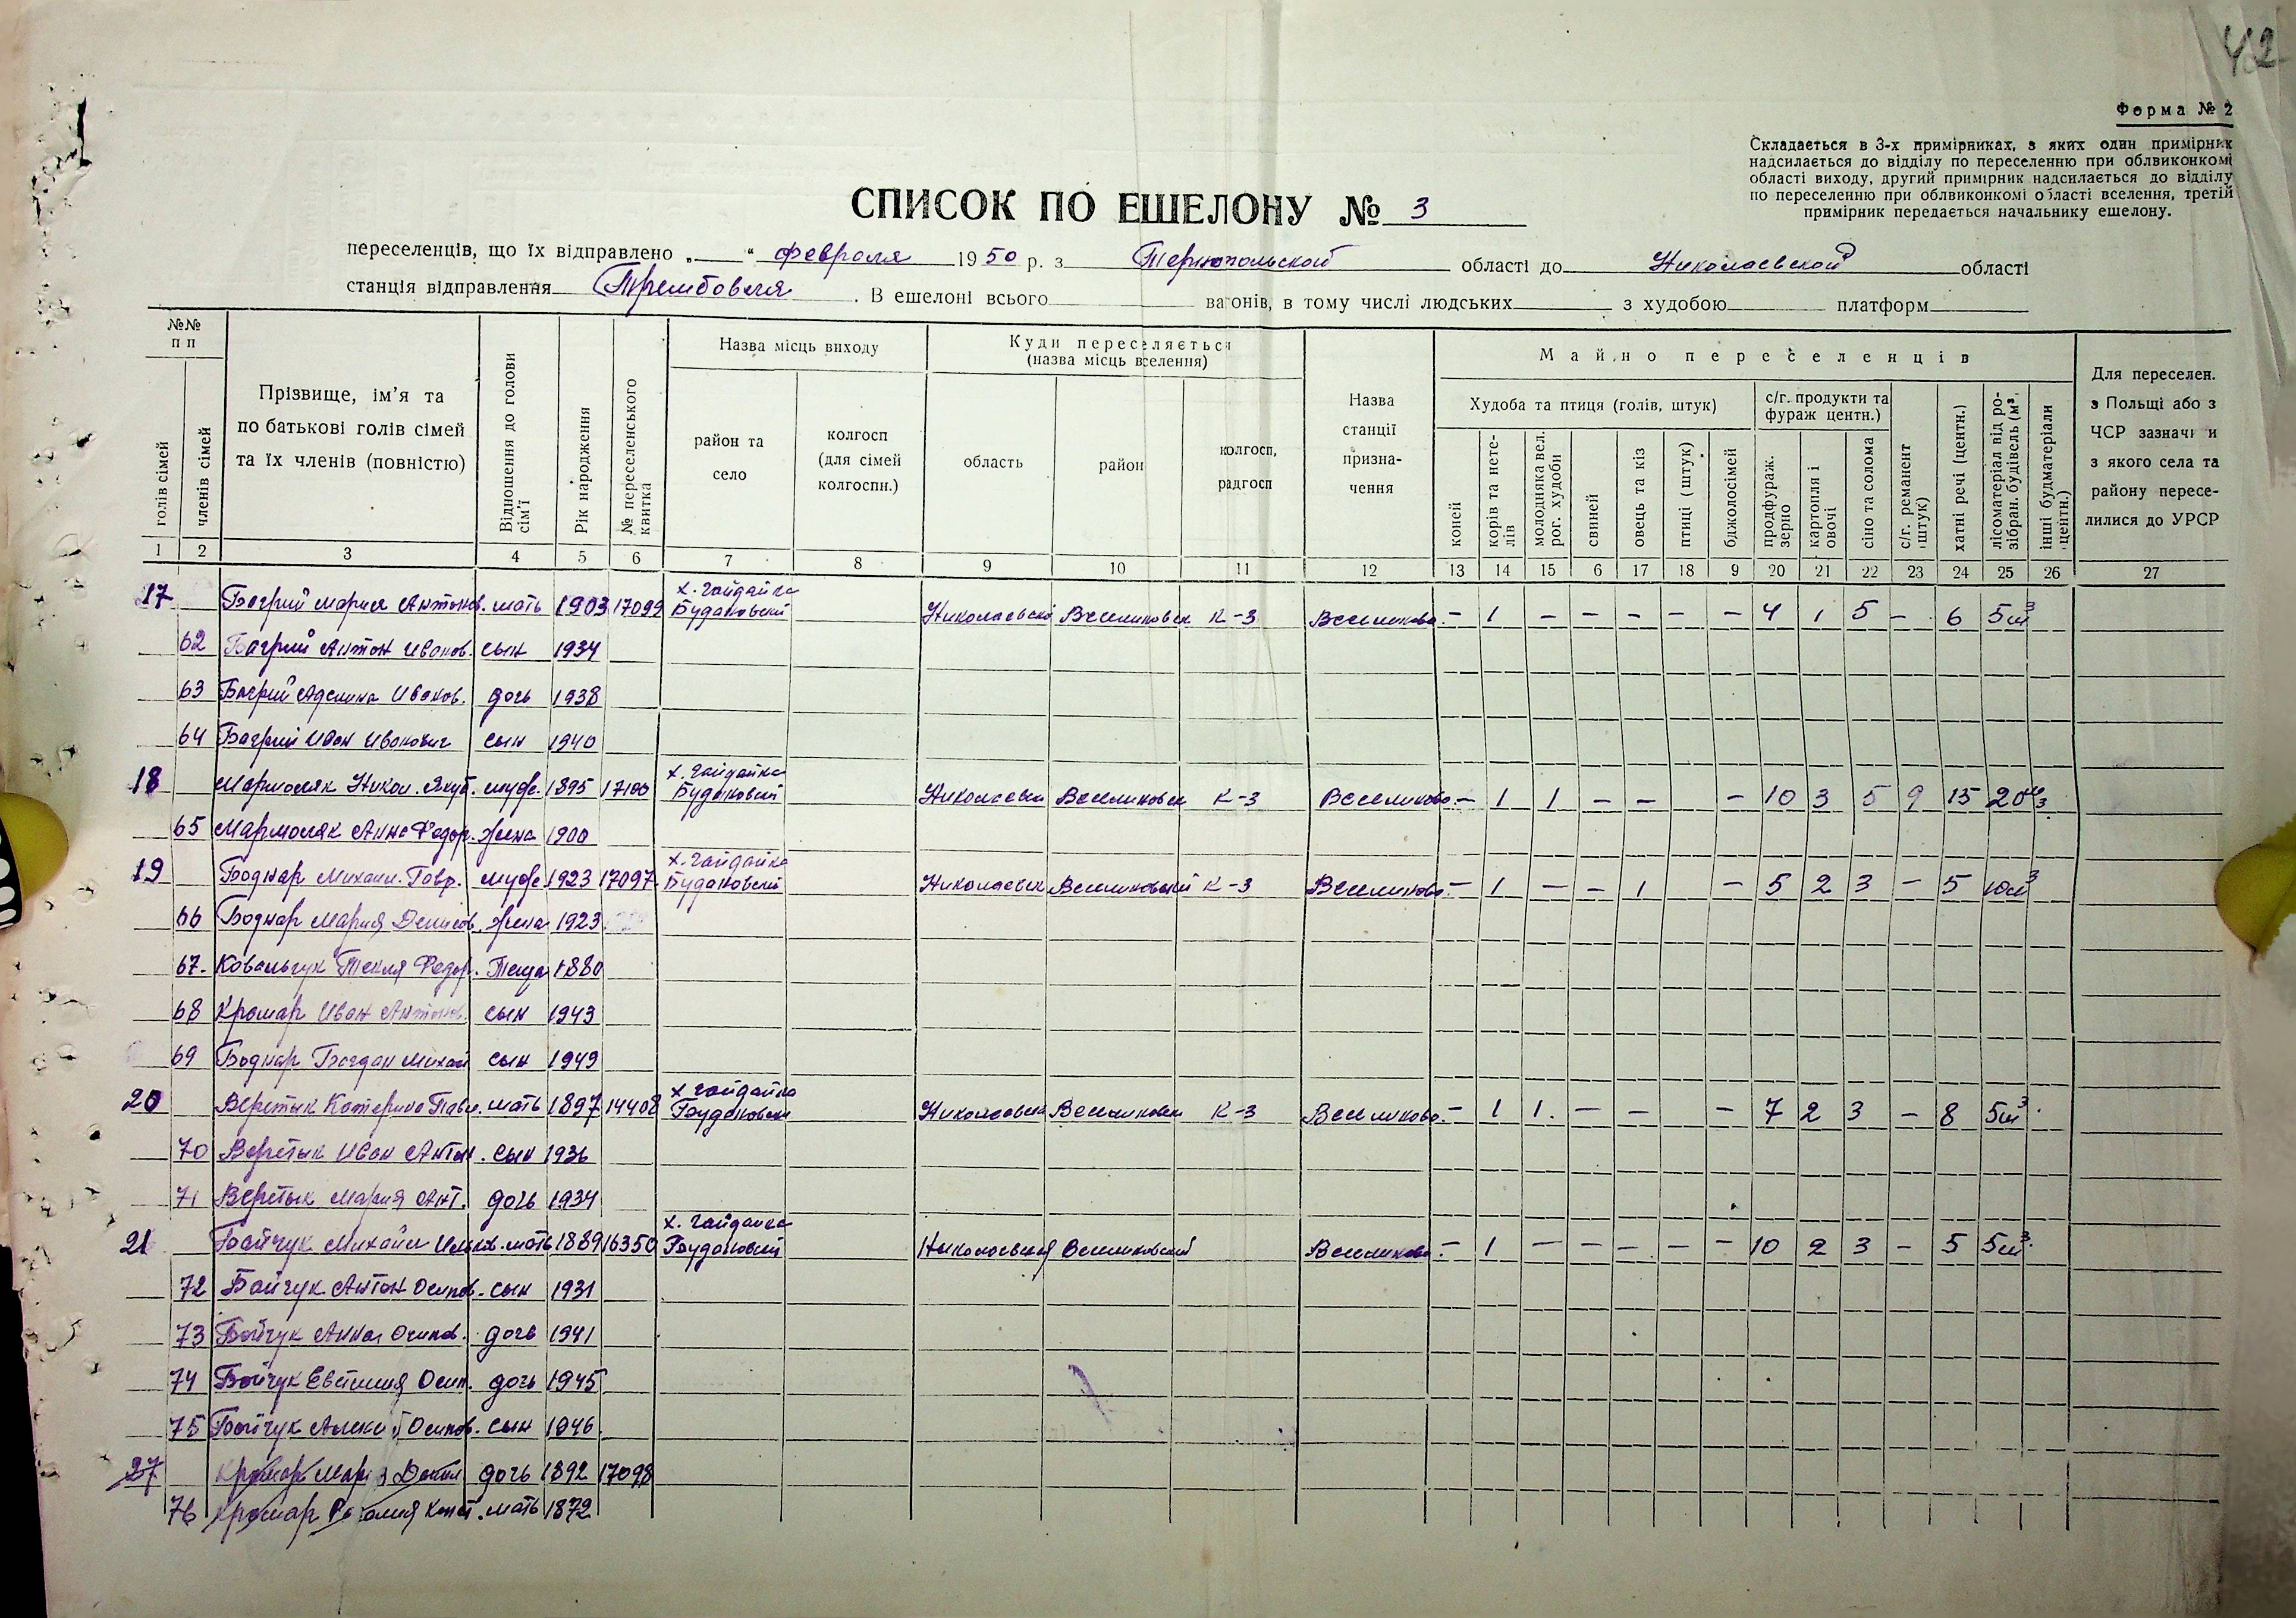 42
Форма № 2
Складається в 3-х примірниках, з яких один примірник
надсилається до відділу по переселенню при облвиконкомі
області виходу, другий примірник надсилається до відділу
по переселенню при облвиконкомі області вселення, третій
примірник передається начальнику ешелону.
СПИСОК ПО ЕШЕЛОНУ № 3
переселенців, що їх відправлено „ “ февраля 1950 р. з Тернопольской області до Николаевской області
станція відправлення Трембовля . В ешелоні всього вагонів, в тому числі людських з худобою платформ
№№ п п
голів сімей
членів сімей
Прізвище, ім’я та по батькові голів сімей та їх членів (повністю)
Відношення до голови сім’ї
Рік народження
№ переселенського квитка
Назва місць виходу
район та село
колгосп (для сімей колгоспн.)
Куди переселяється (назва місць вселення)
область
район
колгосп, радгосп
Назва станції призна- чення
Майно переселенців
Худоба та птиця (голів, штук)
коней
корів та нете- лів
молодняка вел. рог. худоби
свиней
овець та кіз
птиці (штук)
бджолосімей
с/г. продукти та фураж центн.)
продфураж. зерно
картопля і овочі
сіно та солома
с/г. реманент (штук)
хатні речі (центн.)
лісоматеріал від ро- зібран. будівель (м³,
інші будматеріали центн.)
Для переселен. з Польщі або з ЧСР зазначи и з якого села та району пересе- лилися до УРСР
1 2 3 4 5 6 7 8 9 10 11 12 13 14 15 6 17 18 9 20 21 22 23 24 25 26 27
х. Гайдайка
17 Багрий Мария Антонов. мать 1903 17099 Будановский Николаевско Веселиновск К-3 Веселиново - 1 - - - - - 4 1 5 - 6 5м³
62 Багрий Антон Иванов. сын 1934
63 Багрий Аделина Иванов. дочь 1938
64 Багрий Иван Иванович сын 1940
х. Гайдайка
18 Мармоляк Никол. Якуб. муж. 1895 17100 Будановский Николаевск Веселиновск К-3 Веселиново - 1 1 - - - 10 3 5 9 15 20м³
65 Мармоляк Анна Федор. жена 1900
х. Гайдайка
19 Боднар Михаил Гавр. муж 1923 17097 Будановский Николаевск Веселиновский К-3 Веселиново - 1 - - 1 - 5 2 3 - 5 10м³
66 Боднар Мария Денисов. жена 1923
67. Ковальчук Текля Федор. Теща 1880
68 Крамар Иван Антонов. сын 1943
69 Боднар Богдан Михай сын 1949
х Гайдайка
20 Веретык Катерина Павл. мать 1897 14408 Будановски Николаевск Веселиновск К-3 Веселиново - 1 1. - - - 7 2 3 - 8 5м³
70 Веретык Иван Антон. сын 1936
71 Веретык Мария Ант. дочь 1934
х. Гайдайка
21 Бойчук Михайли мать 1889 16350 Будановский Николаевская Веселиновский Веселиново - 1 - - - - - 10 2 3 - 5 5м³
72 Бойчук Антон Осипов. сын 1931
73 Бойчук Анна Осипов. дочь 1941
74 Бойчук Осип. дочь 1945
75 Бойчук Алексий Осипов. сын 1946
27 Крамар Мария дочь 1892 17098
76 Крамар мать 1872